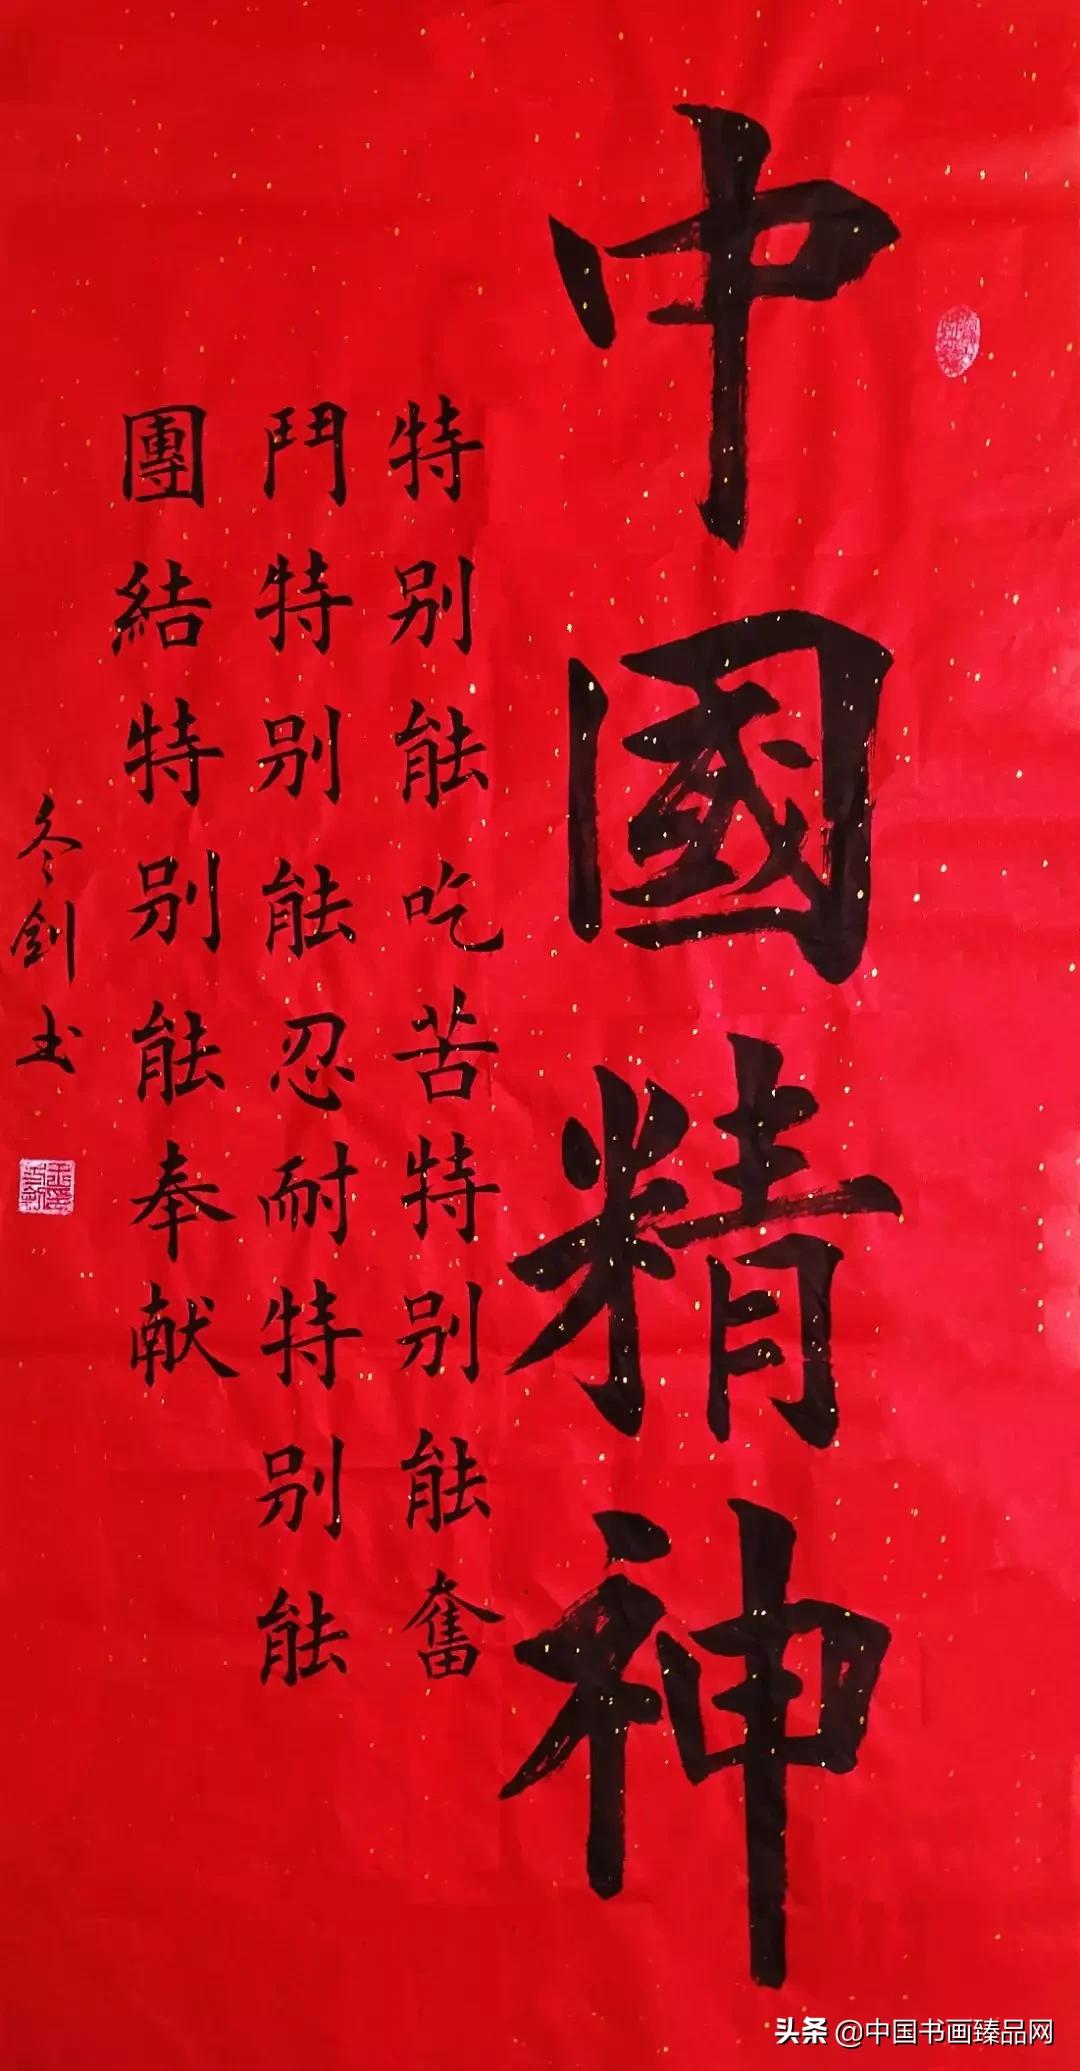 中國精神
特别能吃苦特别能奮
鬥特别能忍耐特别能
團結特别能奉献
冬劍书
头条 @中国书画臻品网